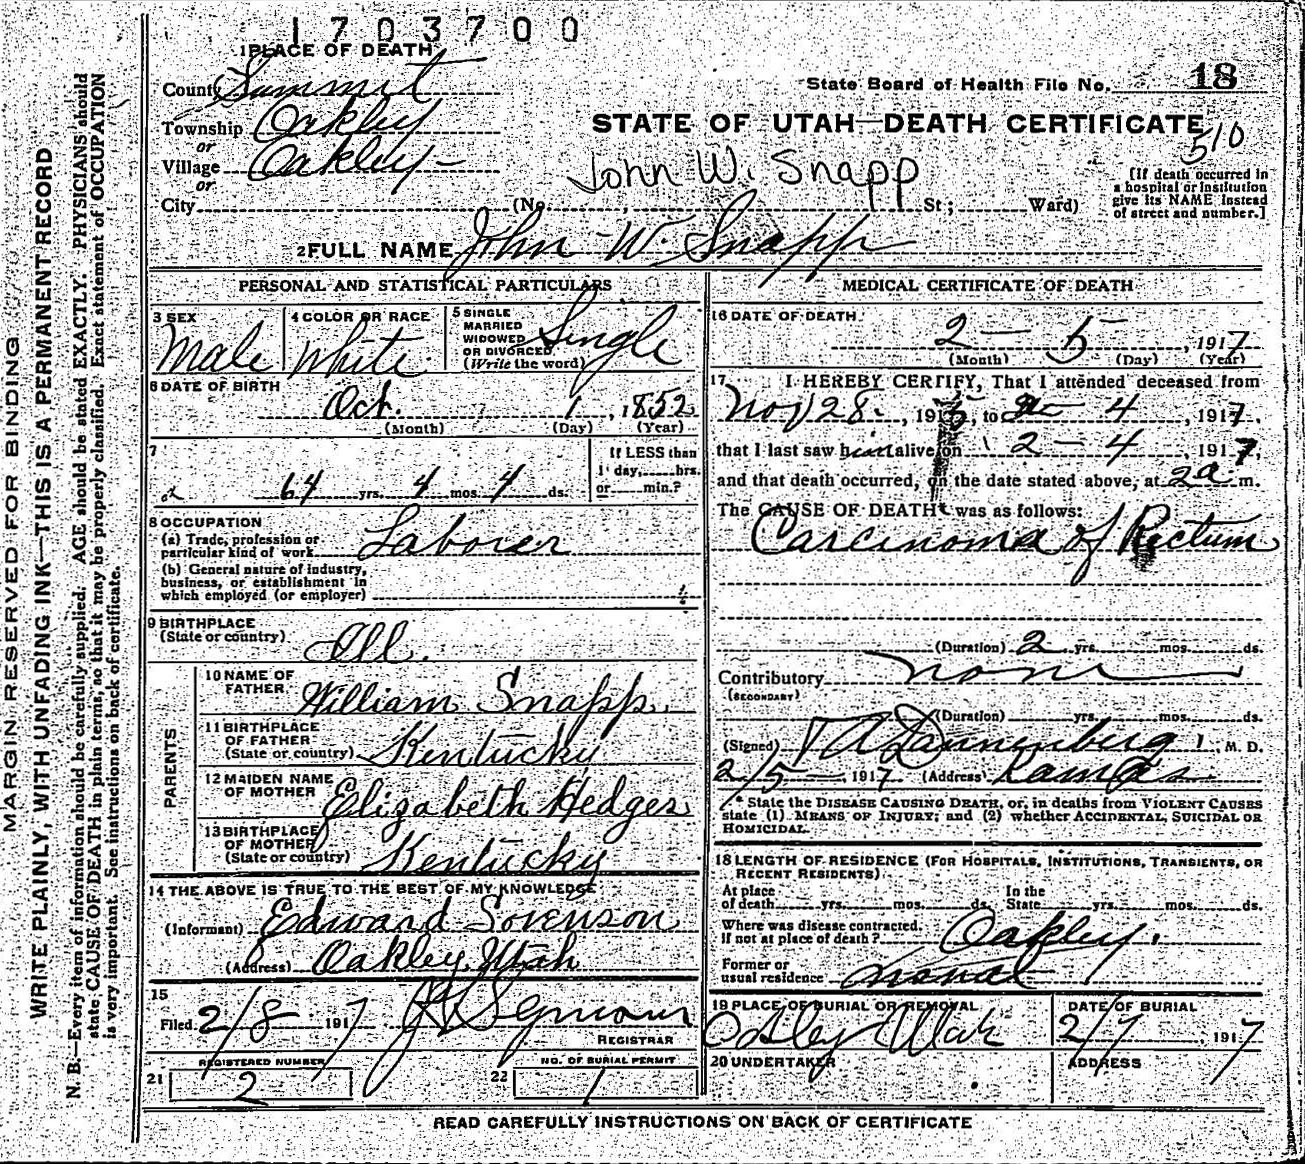 1703700
1 PLACE OF DEATH
County Summit
State Board of Health File No. 18
Township Oakley
STATE OF UTAH—DEATH CERTIFICATE
510
or
Village Oakley
John W. Snapp
[If death occurred in
a hospital or institution
give its NAME instead
of street and number.]
or
City (No. St; Ward)
2 FULL NAME John W. Snapp
PERSONAL AND STATISTICAL PARTICULARS
3 SEX
Male
4 COLOR OR RACE
White
5 SINGLE
MARRIED
WIDOWED
OR DIVORCED
(Write the word)
Single
6 DATE OF BIRTH
Oct. 1, 1852
(Month) (Day) (Year)
7
64 yrs. 4 mos. 4 ds.
If LESS than
1 day, hrs.
or min.?
8 OCCUPATION
(a) Trade, profession or
particular kind of work Laborer
(b) General nature of industry,
business, or establishment in
which employed (or employer)
9 BIRTHPLACE
(State or country) Ill.
PARENTS
10 NAME OF
FATHER William Snapp
11 BIRTHPLACE
OF FATHER
(State or country) Kentucky
12 MAIDEN NAME
OF MOTHER Elizabeth Hedges
13 BIRTHPLACE
OF MOTHER
(State or country) Kentucky
14 THE ABOVE IS TRUE TO THE BEST OF MY KNOWLEDGE
(Informant) Edward Sorenson
(Address) Oakley, Utah
15
Filed 2/8 1917 Seymour
REGISTRAR
REGISTERED NUMBER
21 2
NO. OF BURIAL PERMIT
22 1
MEDICAL CERTIFICATE OF DEATH
16 DATE OF DEATH
2 — 5, 1917
(Month) (Day) (Year)
17 I HEREBY CERTIFY, That I attended deceased from
Nov 28., 1915, to 2 — 4, 1917,
that I last saw him alive on 2 — 4, 1917,
and that death occurred, on the date stated above, at 2 a m.
The CAUSE OF DEATH* was as follows:
Carcinoma of Rectum
(Duration) 2 yrs. mos. ds.
Contributory none
(SECONDARY)
(Duration) yrs. mos. ds.
(Signed) Dannenberg, M. D.
2/5—, 1917 (Address) Kamas
* State the DISEASE CAUSING DEATH, or, in deaths from VIOLENT CAUSES
state (1) MEANS OF INJURY; and (2) whether ACCIDENTAL, SUICIDAL OR
HOMICIDAL.
18 LENGTH OF RESIDENCE (FOR HOSPITALS, INSTITUTIONS, TRANSIENTS, OR
RECENT RESIDENTS).
At place
of death yrs. mos. ds.
In the
State yrs. mos. ds.
Where was disease contracted,
if not at place of death? Oakley.
Former or
usual residence
19 PLACE OF BURIAL OR REMOVAL
Oakley Utah
DATE OF BURIAL
2/7, 1917
20 UNDERTAKER
ADDRESS
READ CAREFULLY INSTRUCTIONS ON BACK OF CERTIFICATE
MARGIN RESERVED FOR BINDING
WRITE PLAINLY, WITH UNFADING INK—THIS IS A PERMANENT RECORD
N. B.—Every item of information should be carefully supplied. AGE should be stated EXACTLY. PHYSICIANS should
state CAUSE OF DEATH in plain terms, so that it may be properly classified. Exact statement of OCCUPATION
is very important. See instructions on back of certificate.